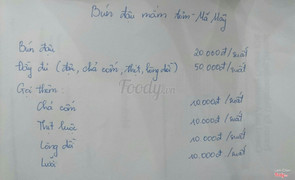 Bún đậu mắm tôm - Mã Mây
Bún đậu 20.000đ/suất
Đầy đủ (đậu, chả cốm, thịt, lòng dồi) 50.000đ/suất
Gọi thêm:
Chả cốm 10.000đ/suất
Thịt luộc 10.000đ/suất
Lòng dồi 10.000đ/suất
Lưỡi 10.000đ/suất
Foody.vn